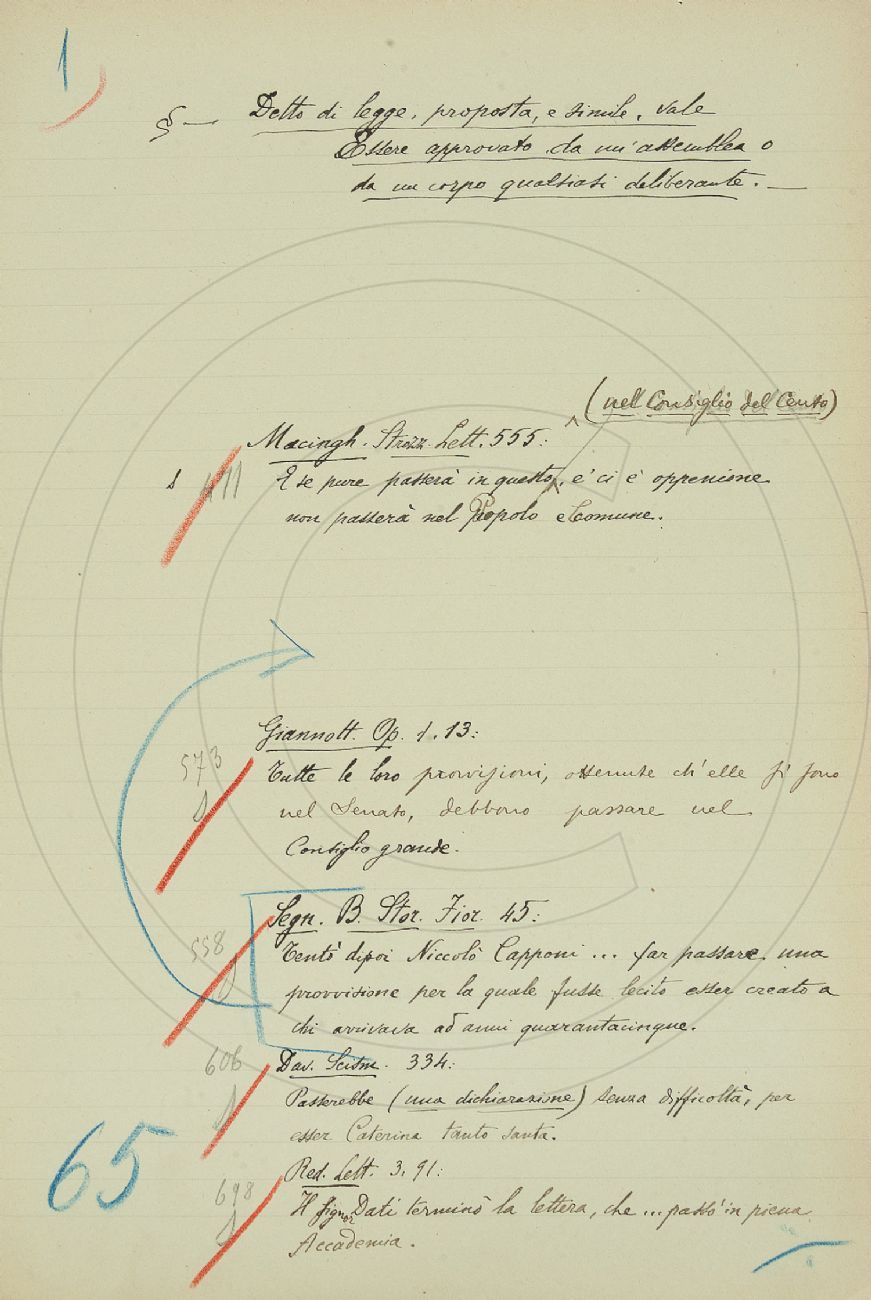 1
§ — Detto di legge, proposta, e simile, vale
Essere approvato da un'assemblea o
da un corpo qualsiasi deliberante. —
(nel Consiglio del Cento)
Macingh. Strozz. Lett. 555:
E se pure passerà in questo, e' ci è oppenione
non passerà nel Popolo e Comune.
Giannott. Op. 1. 13:
573
Tutte le loro provvisioni, ottenute ch'elle si sono
nel Senato, debbono passare nel
Consiglio grande.
Segn. B. Stor. Fior. 45:
558
Tentò dipoi Niccolò Capponi ... far passare una
provvisione per la quale fusse lecito esser creato a
chi arrivava ad anni quarantacinque.
606
Dav. Scism. 334:
Passerebbe (una dichiarazione) senza difficoltà, per
esser Caterina tanto santa.
65
Red. Lett. 3. 91:
698
Il signor Dati terminò la lettera, che ... passò in piena
Accademia.